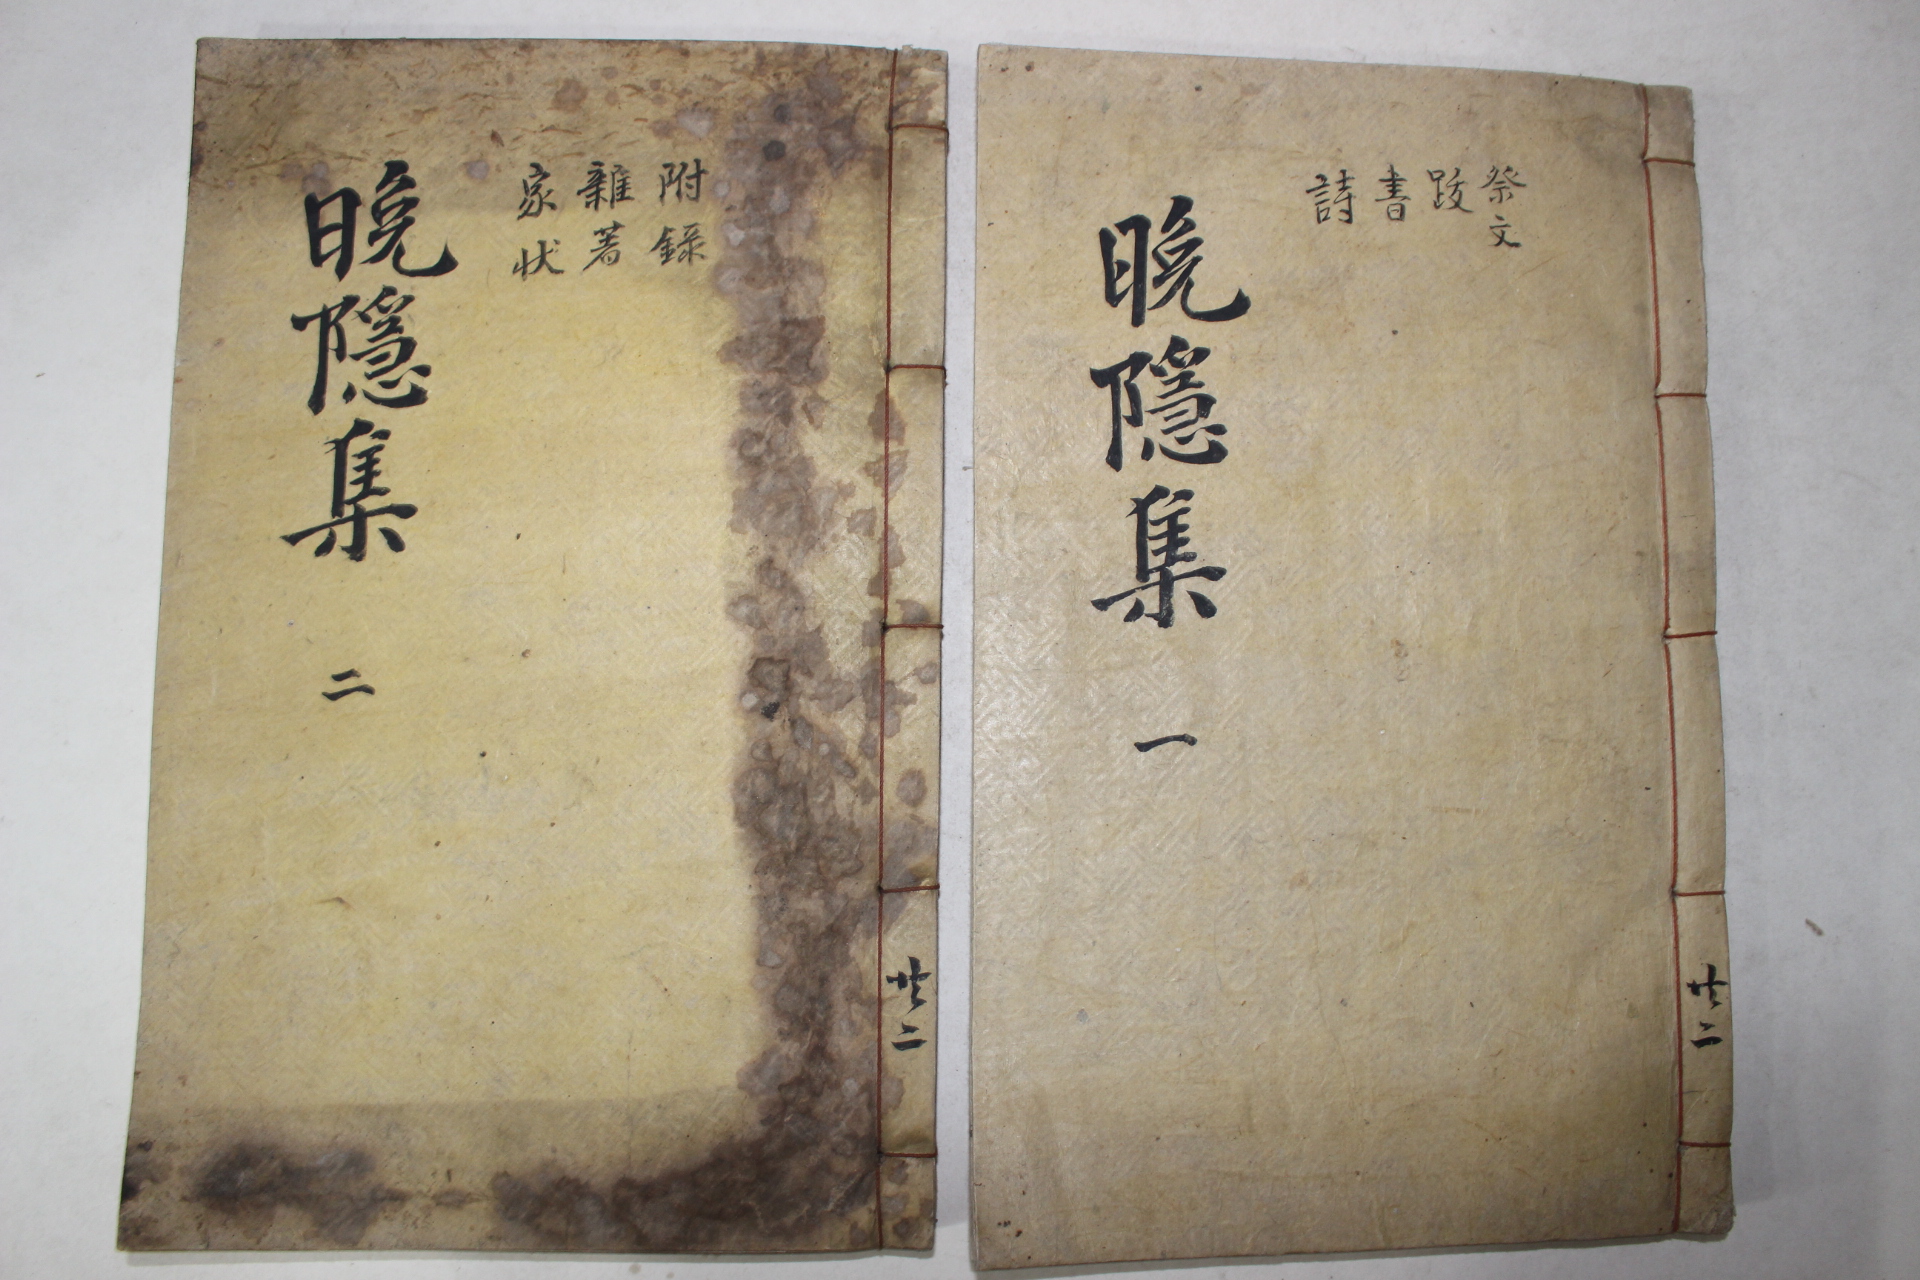 共二
祭文
跋
書
詩
晩隱集 一
共二
附錄
雜著
家状
晩隱集 二